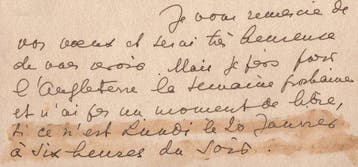 Je vous remercie de
vos vœux et serai très heureuse
de vous revoir Mais je pars pour
l'Angleterre la semaine prochaine
et n'ai pas un moment de libre,
si ce n'est Lundi le 20 Janvier
à six heures du soir.